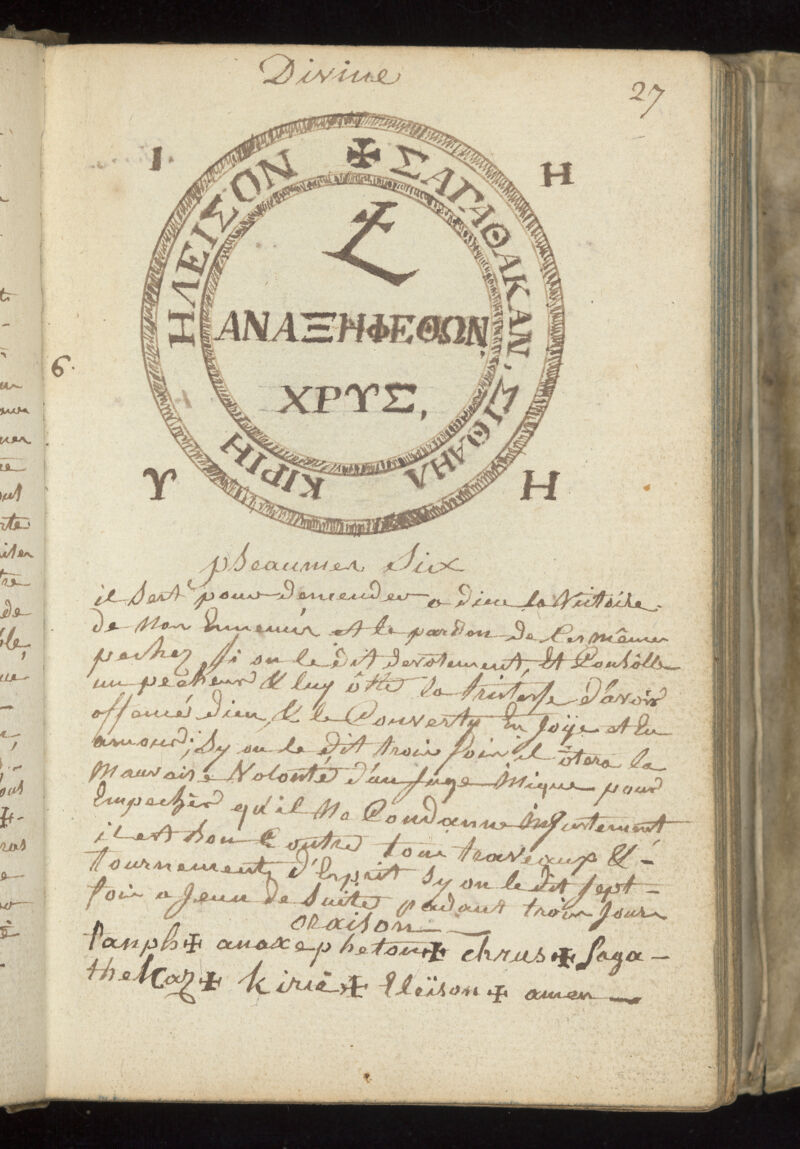 Divine
27
Ι Η
✠ ΣΑΓΑΘΑΚΑΝ, ΣΙΘΑΗΛ
ΚΙΡΙΗ ΗΛΕΙΣΟΝ
ΑΝΑΞΗΦΕΘΩΝ,
ΧΡΥΣ,
6.
Υ Η
pseaumes Six
il sert pour demender a dieu la Victoire
de nos Ennemis et le pardon de les mêmes
pechez, si on le dit devotement, Et Consolle
un pecheur & luy ôtte la tristesse d'avoir
offencé dieu, & le Converty En joÿe et En
amour; sy on le dit trois fois il ôtera la
Mauvaise Volonté d'un juge inique pour
Empecher qu'il Ne Condanne injustement
il est bon Contre tous traveaux & -
tournements d'Esprit sy on le dit sept -
fois a jeun de Suite padant trois jours
oraison
sanph✠ anaxepheton✠ chrus✠ saga -
thekaz✠ kirië✠ Eleïson✠ amen